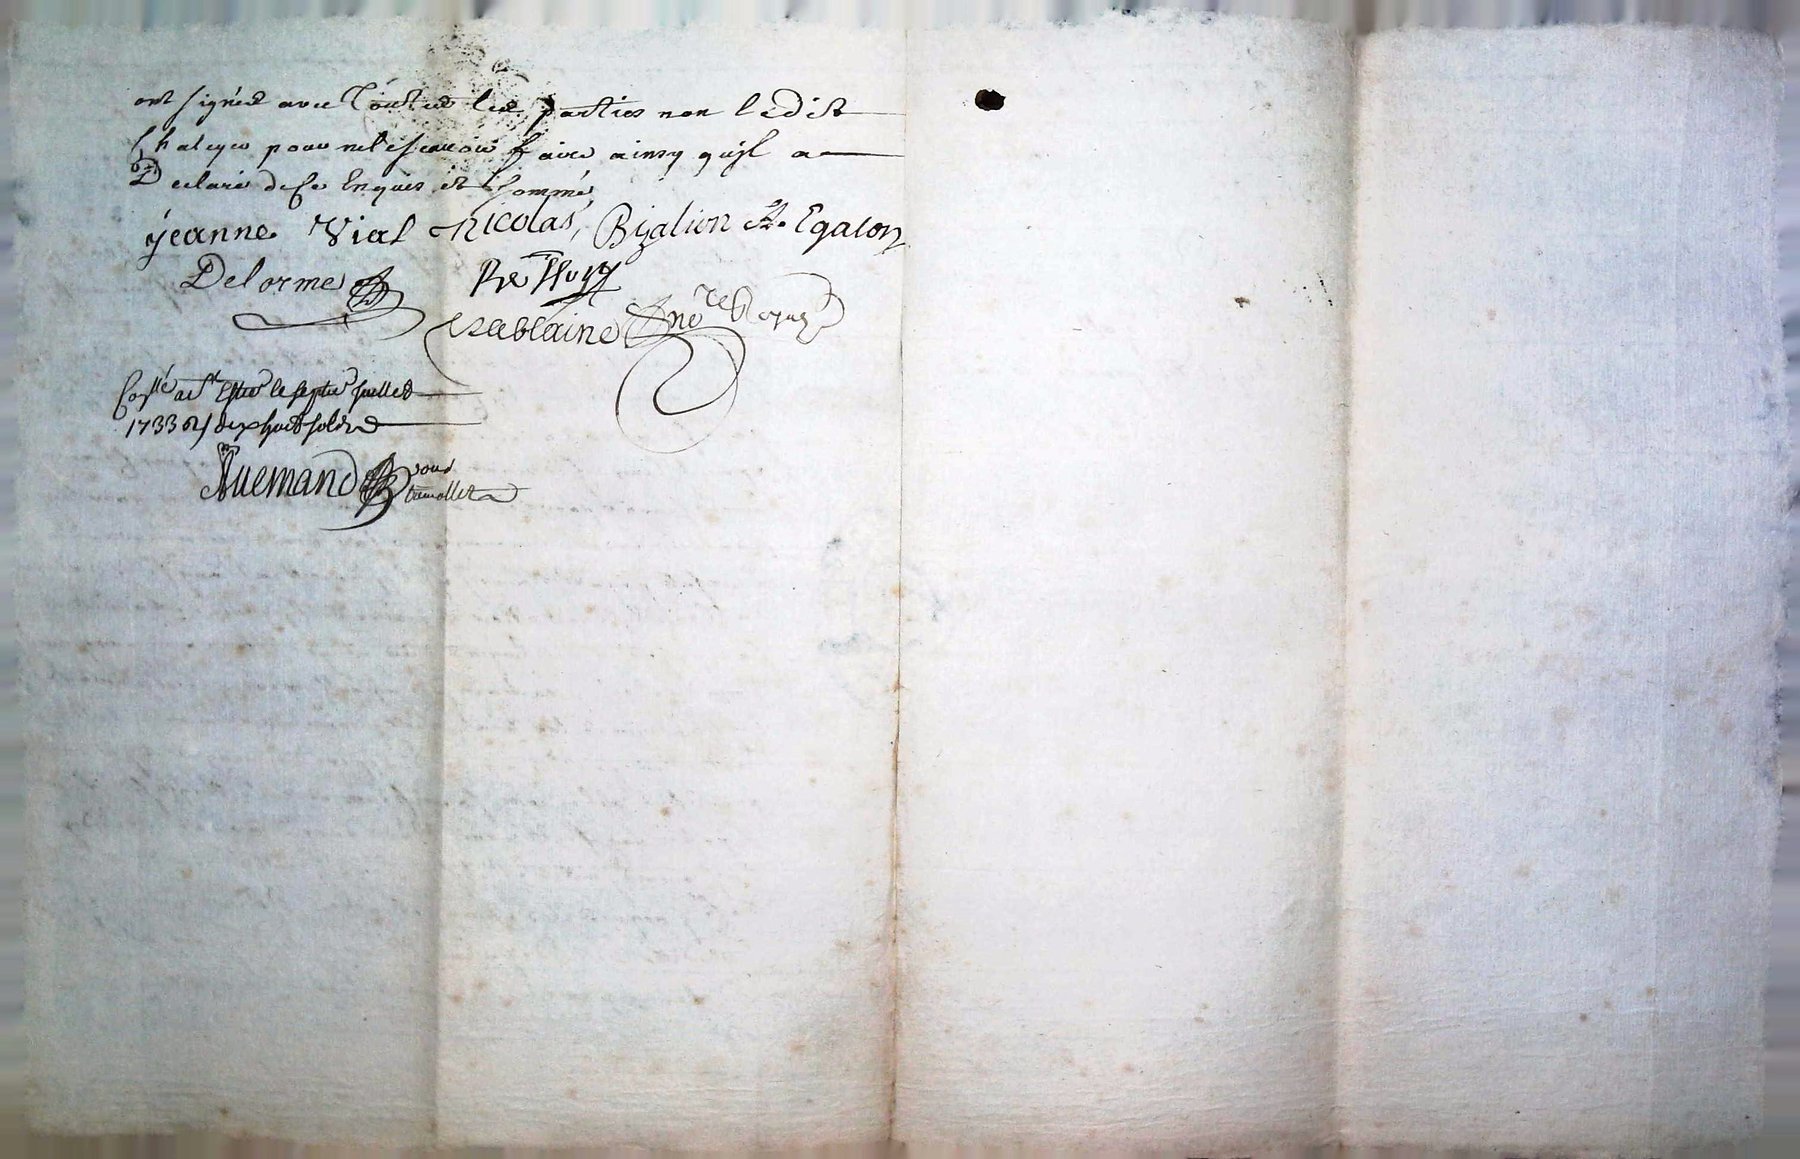 ont signés avec Toutes les parties non ledit
Chaleyer pour ne le scavoir faire ainsy quil a
Declaré de ce Enquis et sommé
jeanne Vial nicolas, Bizalion A. Egalon
Delorme
Dablaine nore Royal
Con.llé a St Esti.e le septie Juillet
1733 R/ dix huit sold
Allemand pour
tremollet